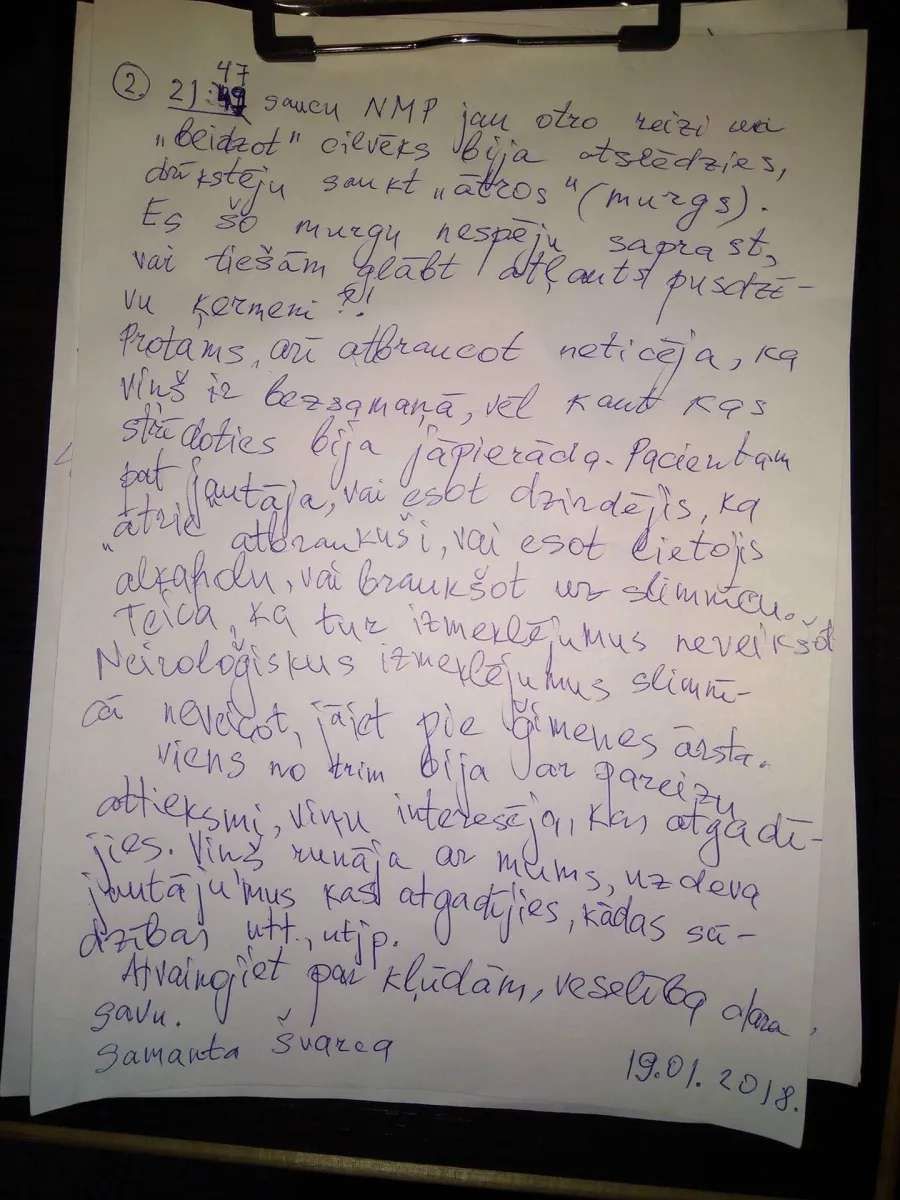 47
2. 21:49 saucu NMP jau otro reizi un
"beidzot" cilvēks bija atslēdzies,
drīkstēju saukt "ātros" (murgs).
Es šo murgu nespēju saprast,
vai tiešām glābt atļauts pusdzī-
vu ķermeni?!
Protams, arī atbraucot neticēja, ka
viņš ir bezsamaņā, vēl kaut kas
strīdoties bija jāpierāda. Pacientam
pat jautāja, vai esot dzirdējis, ka
"ātrie atbraukuši, vai esot lietojis
alkaholu, vai braukšot uz slimnīcu.
Teica, ka tur izmeklējumus neveikšot
Neiroloģiskus izmeklējumus slimnī-
cā neveicot, jāiet pie ģimenes ārsta.
viens no trim bija ar pareizu
attieksmi, viņu interesēja, kas atgadī-
jies. Viņš runāja ar mums, uzdeva
jautājumus kas atgadījies, kādas sū-
dzības utt., utjp.
Atvainojiet par kļūdām, veselība dara
savu.
Samanta Švarca
19.01.2018.